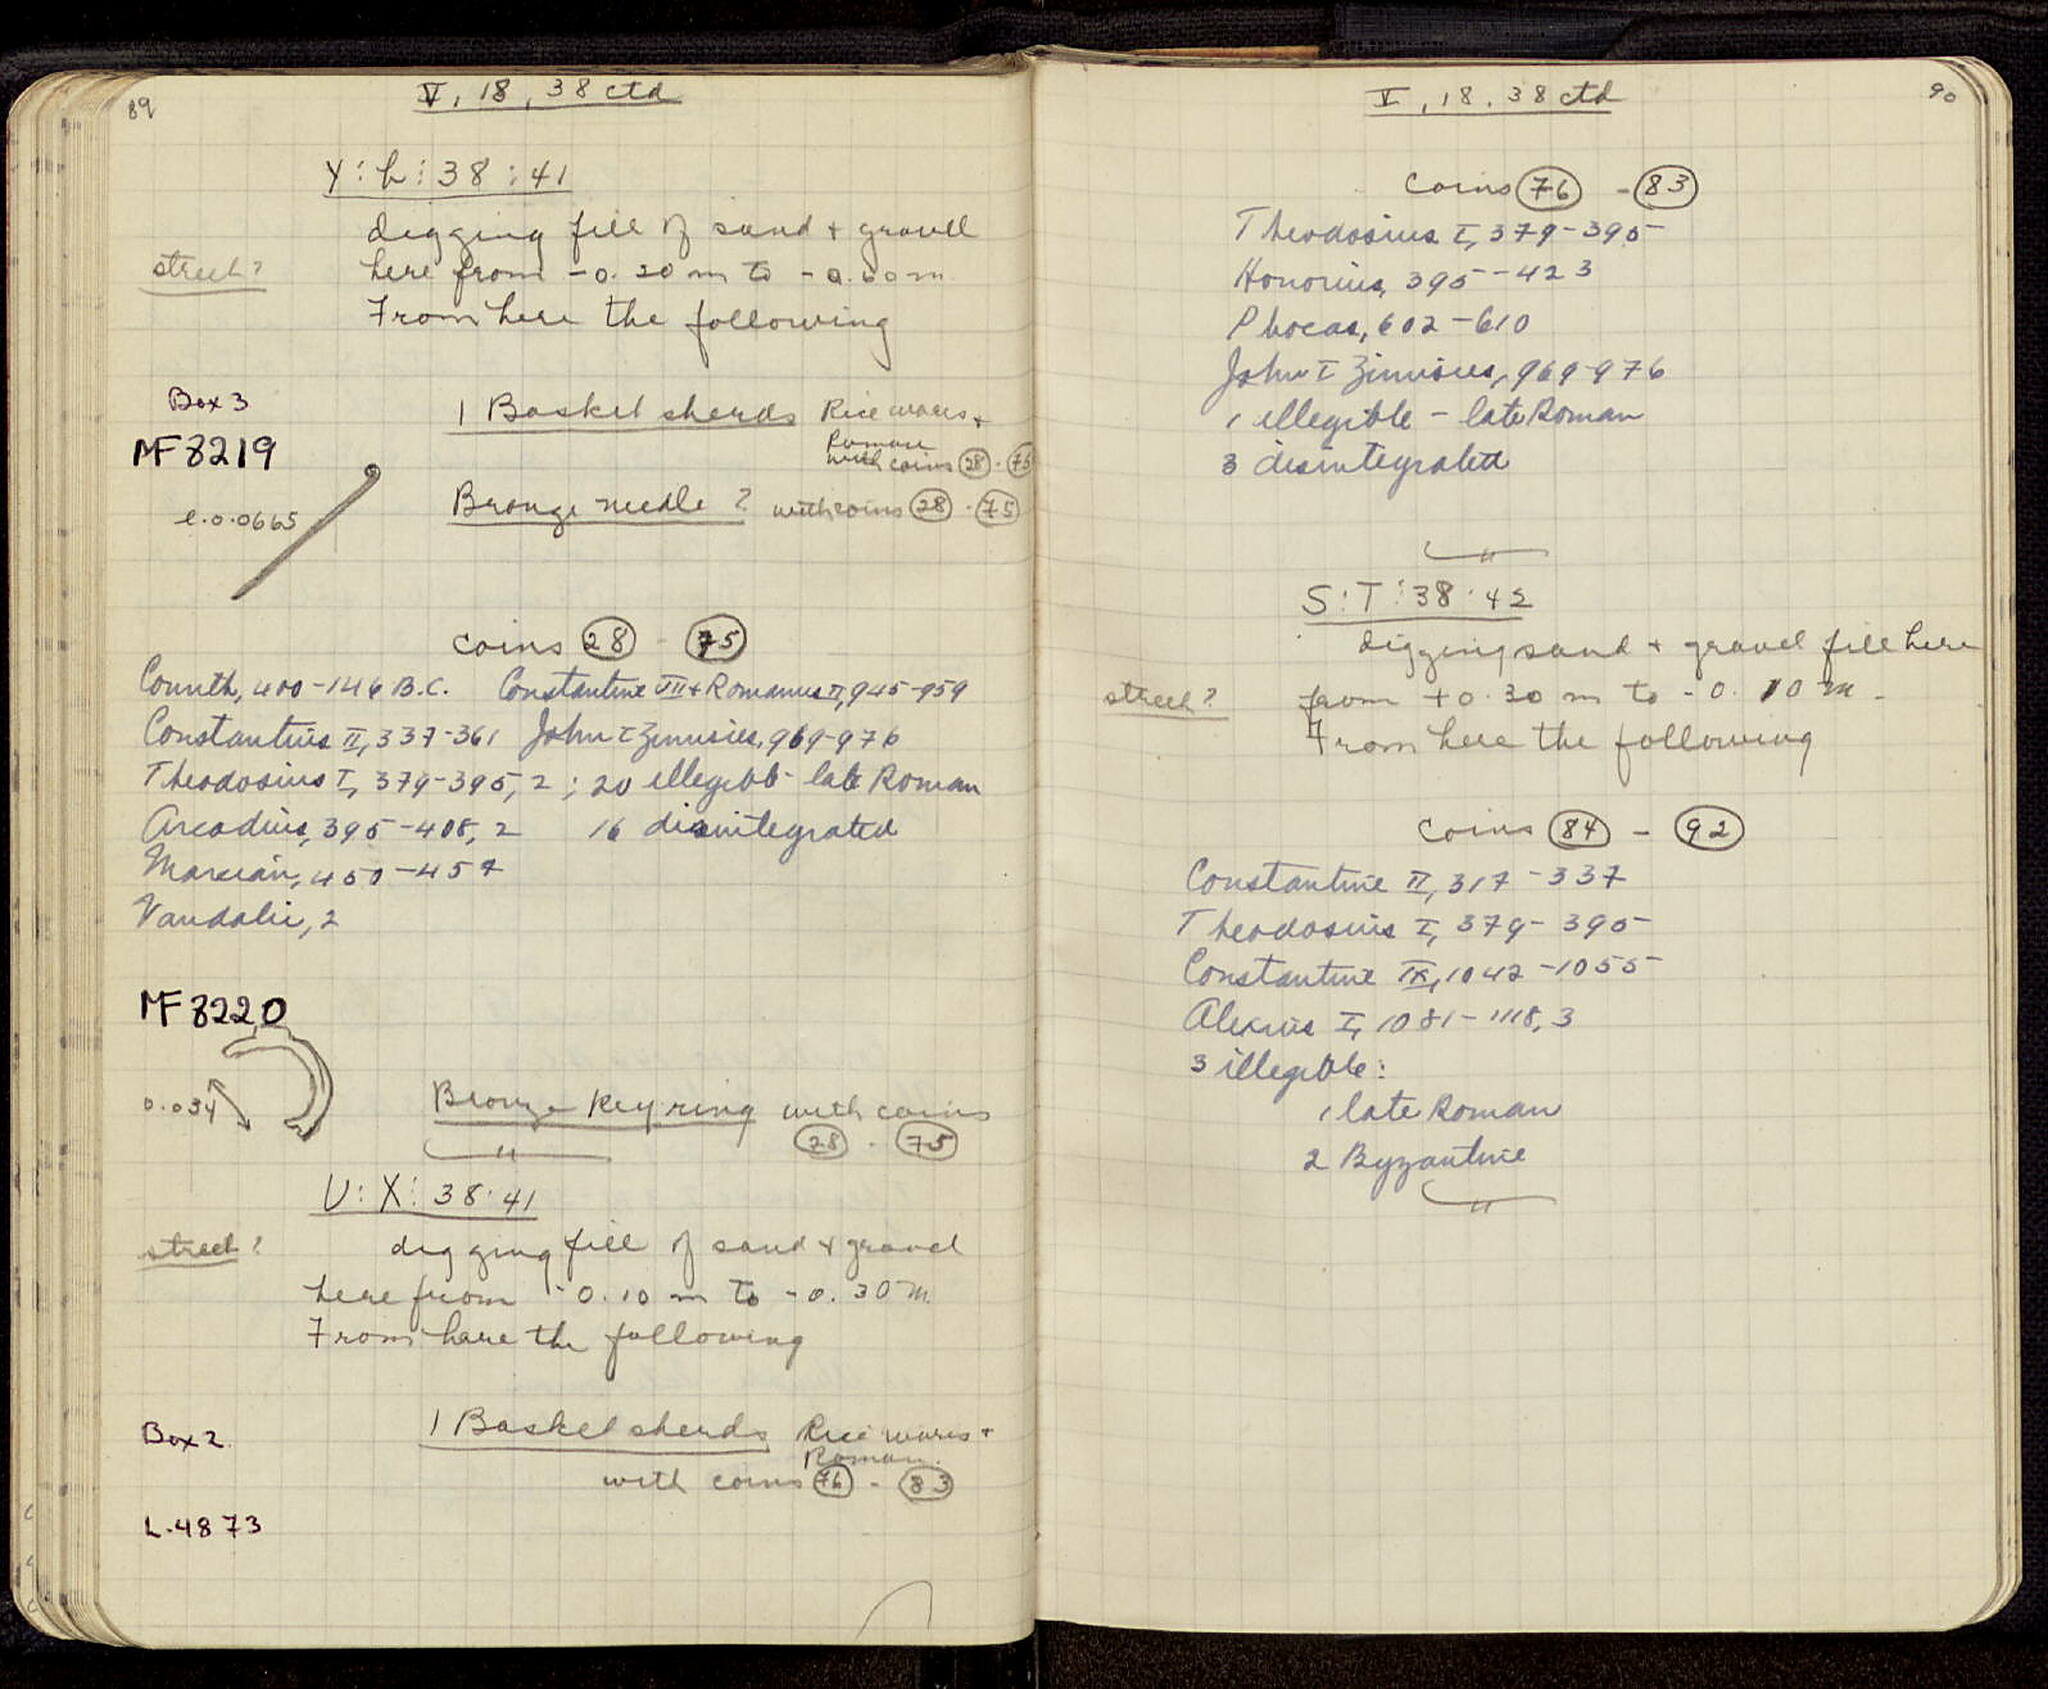 89
V, 18, 38 ctd
Y:h:38:41
digging fill of sand + gravell
street? here from -0.20 m to -0.60 m
From here the following
Box 3
1 Basket sherds Rice wares +
Roman
with coins 28 - 75
MF 8219
l. 0.0665
Bronze needle? with coins 28 - 75
coins 28 - 75
Corinth, 400-146 B.C. Constantine VII + Romanus II, 945-959
Constantius II, 337-361 John I Zimisies, 969-976
Theodosius I, 379-395, 2; 20 illegible - late Roman
Arcadius, 395-408, 2 16 disintegrated
Marcian, 450-457
Vandalic, 2
MF 8220
0.034
Bronze key ring with coins
28 - 75
U:X:38:41
street? digging fill of sand + gravel
here from -0.10 m to -0.30 m.
From here the following
Box 2
1 Basket sherds Rice wares +
Roman.
with coins 76 - 83
L-4873
90
V, 18. 38 ctd
coins 76 - 83
Theodosius I, 379-395
Honorius, 395-423
Phocas, 602-610
John I Zimisies, 969-976
1 illegible - late Roman
3 disintegrated
S:T:38:42
digging sand + gravel fill here
street? from +0.30 m to -0.10 m -
From here the following
coins 84 - 92
Constantine II, 317-337
Theodosius I, 379-395
Constantine IX, 1042-1055
Alexius I, 1081-1118, 3
3 illegible:
1 late Roman
2 Byzantine